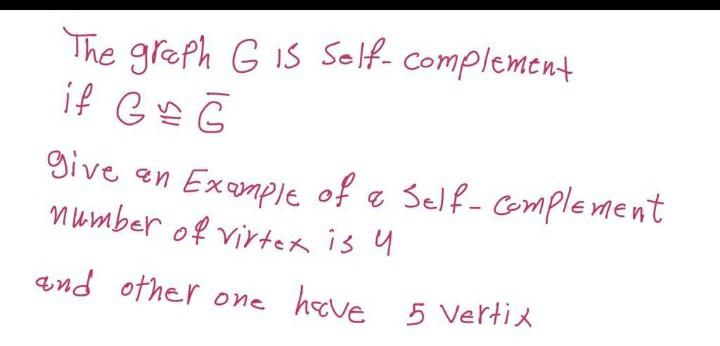 The graph G is Self-complement
if G ≅ G̅
give an Example of a Self-complement
number of virtex is 4
and other one have 5 vertix